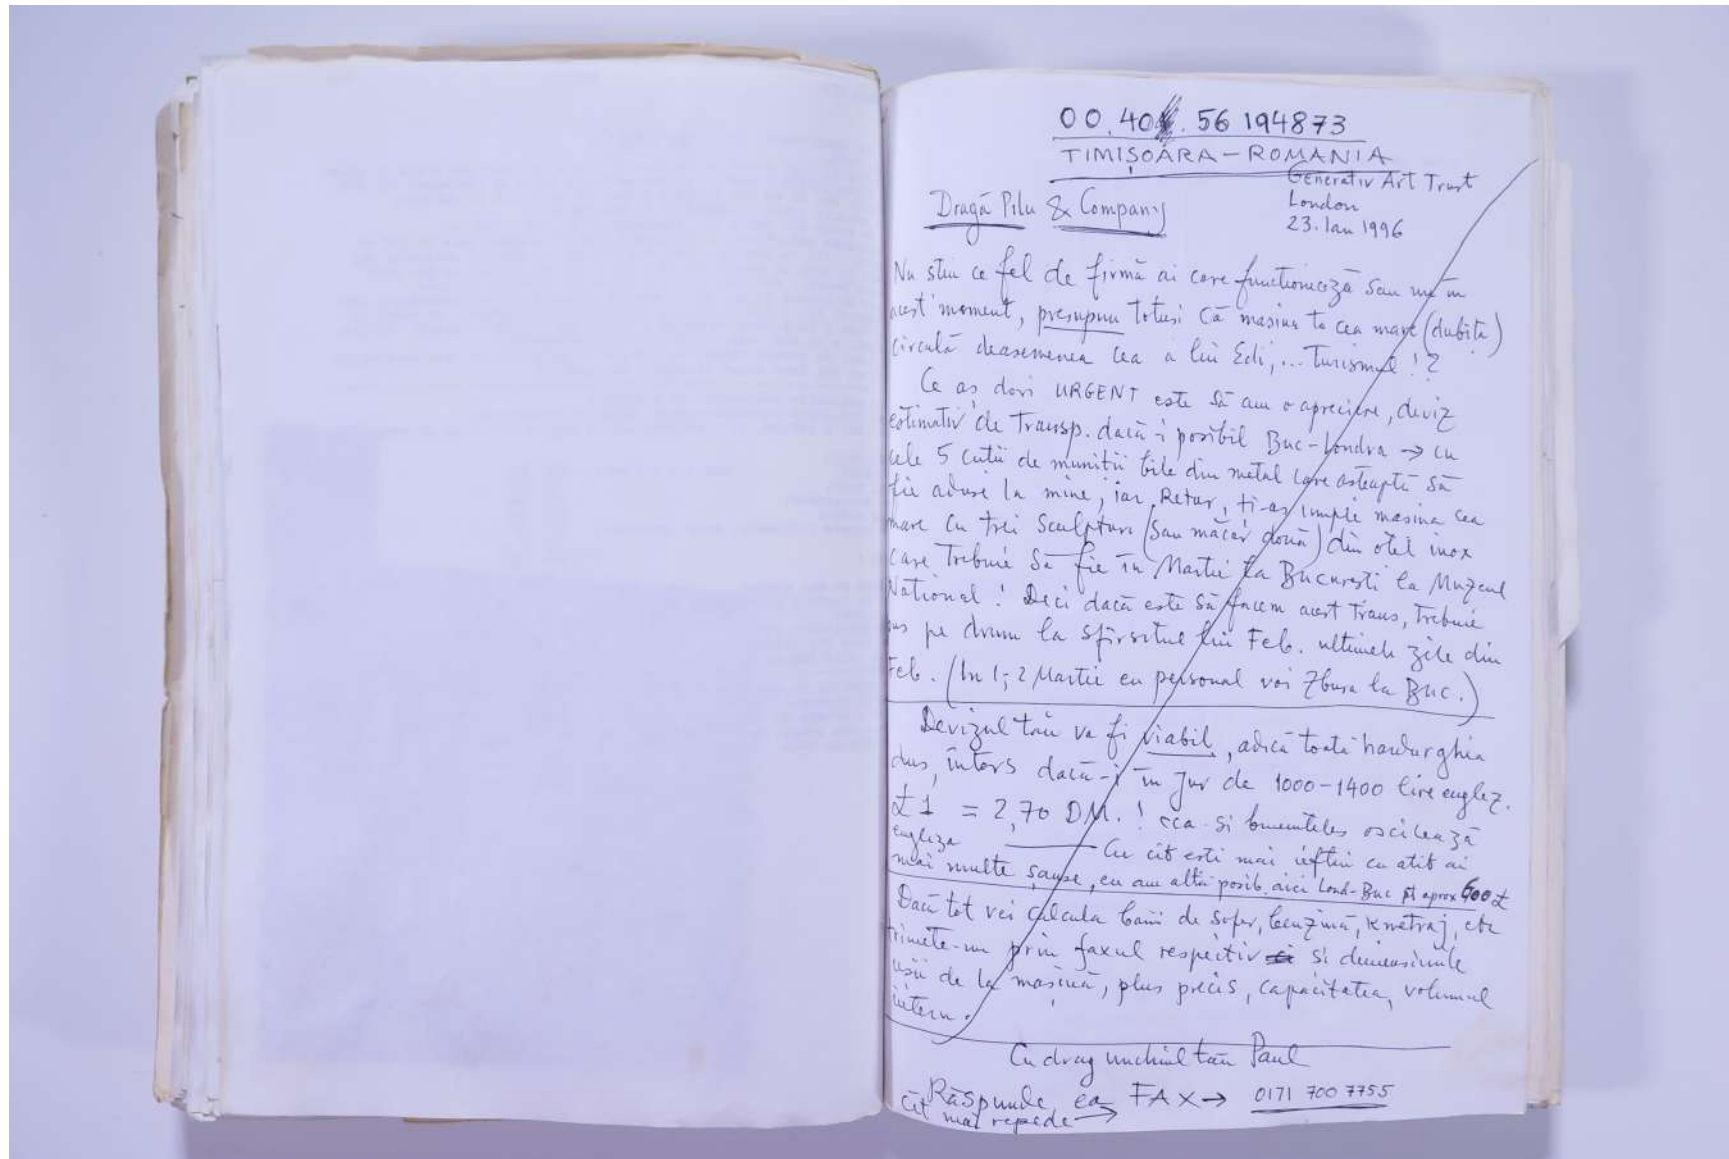 00.40 . 56 194873
TIMIȘOARA – ROMANIA
Generativ Art Trust
London
23. Ian 1996
Dragă Pilu & Company
Nu stiu ce fel de firmă ai care functionează sau nu în
acest moment, presupun totusi că masina ta cea mare (dubița)
circulă deasemenea cea a lui Edi, ... Turismul !?
Ce aș dori URGENT este să am o apreciere, deviz
estimativ de Transp. dacă-i posibil Buc-Londra → cu
cele 5 cutii de munitii bile din metal care asteaptă să
fie aduse la mine, iar Retur, ti-as umple masina cea
mare cu trei sculpturi (sau măcar două) din otel inox
care trebuie să fie în Martie la Bucuresti la Muzeul
National ! Deci dacă este să facem acest Trans, trebuie
pe drum la sfîrsitul lui Feb. ultimele zile din
Feb. (In 1; 2 Martie eu personal voi zbura la Buc.)
Devizul tău va fi viabil, adică toată harburghia
dus, întors dacă-i în jur de 1000-1400 lire englez.
£1 = 2,70 DM. ! cca si oscilează
engleza
Cu cît esti mai ieftin cu atît ai
mai multe șanse, eu am altă posib. aici Lond-Buc pt aprox 600 £
Dacă tot vei calcula banii de sofer, benzină, kmetraj, etc
trimete-mi prin faxul respectiv si dimensiunile
usii de la mașină, plus precis, capacitatea, volumul
intern.
Cu drag unchiul tău Paul
Răspunde ea FAX → 0171 700 7755
cît mai repede →